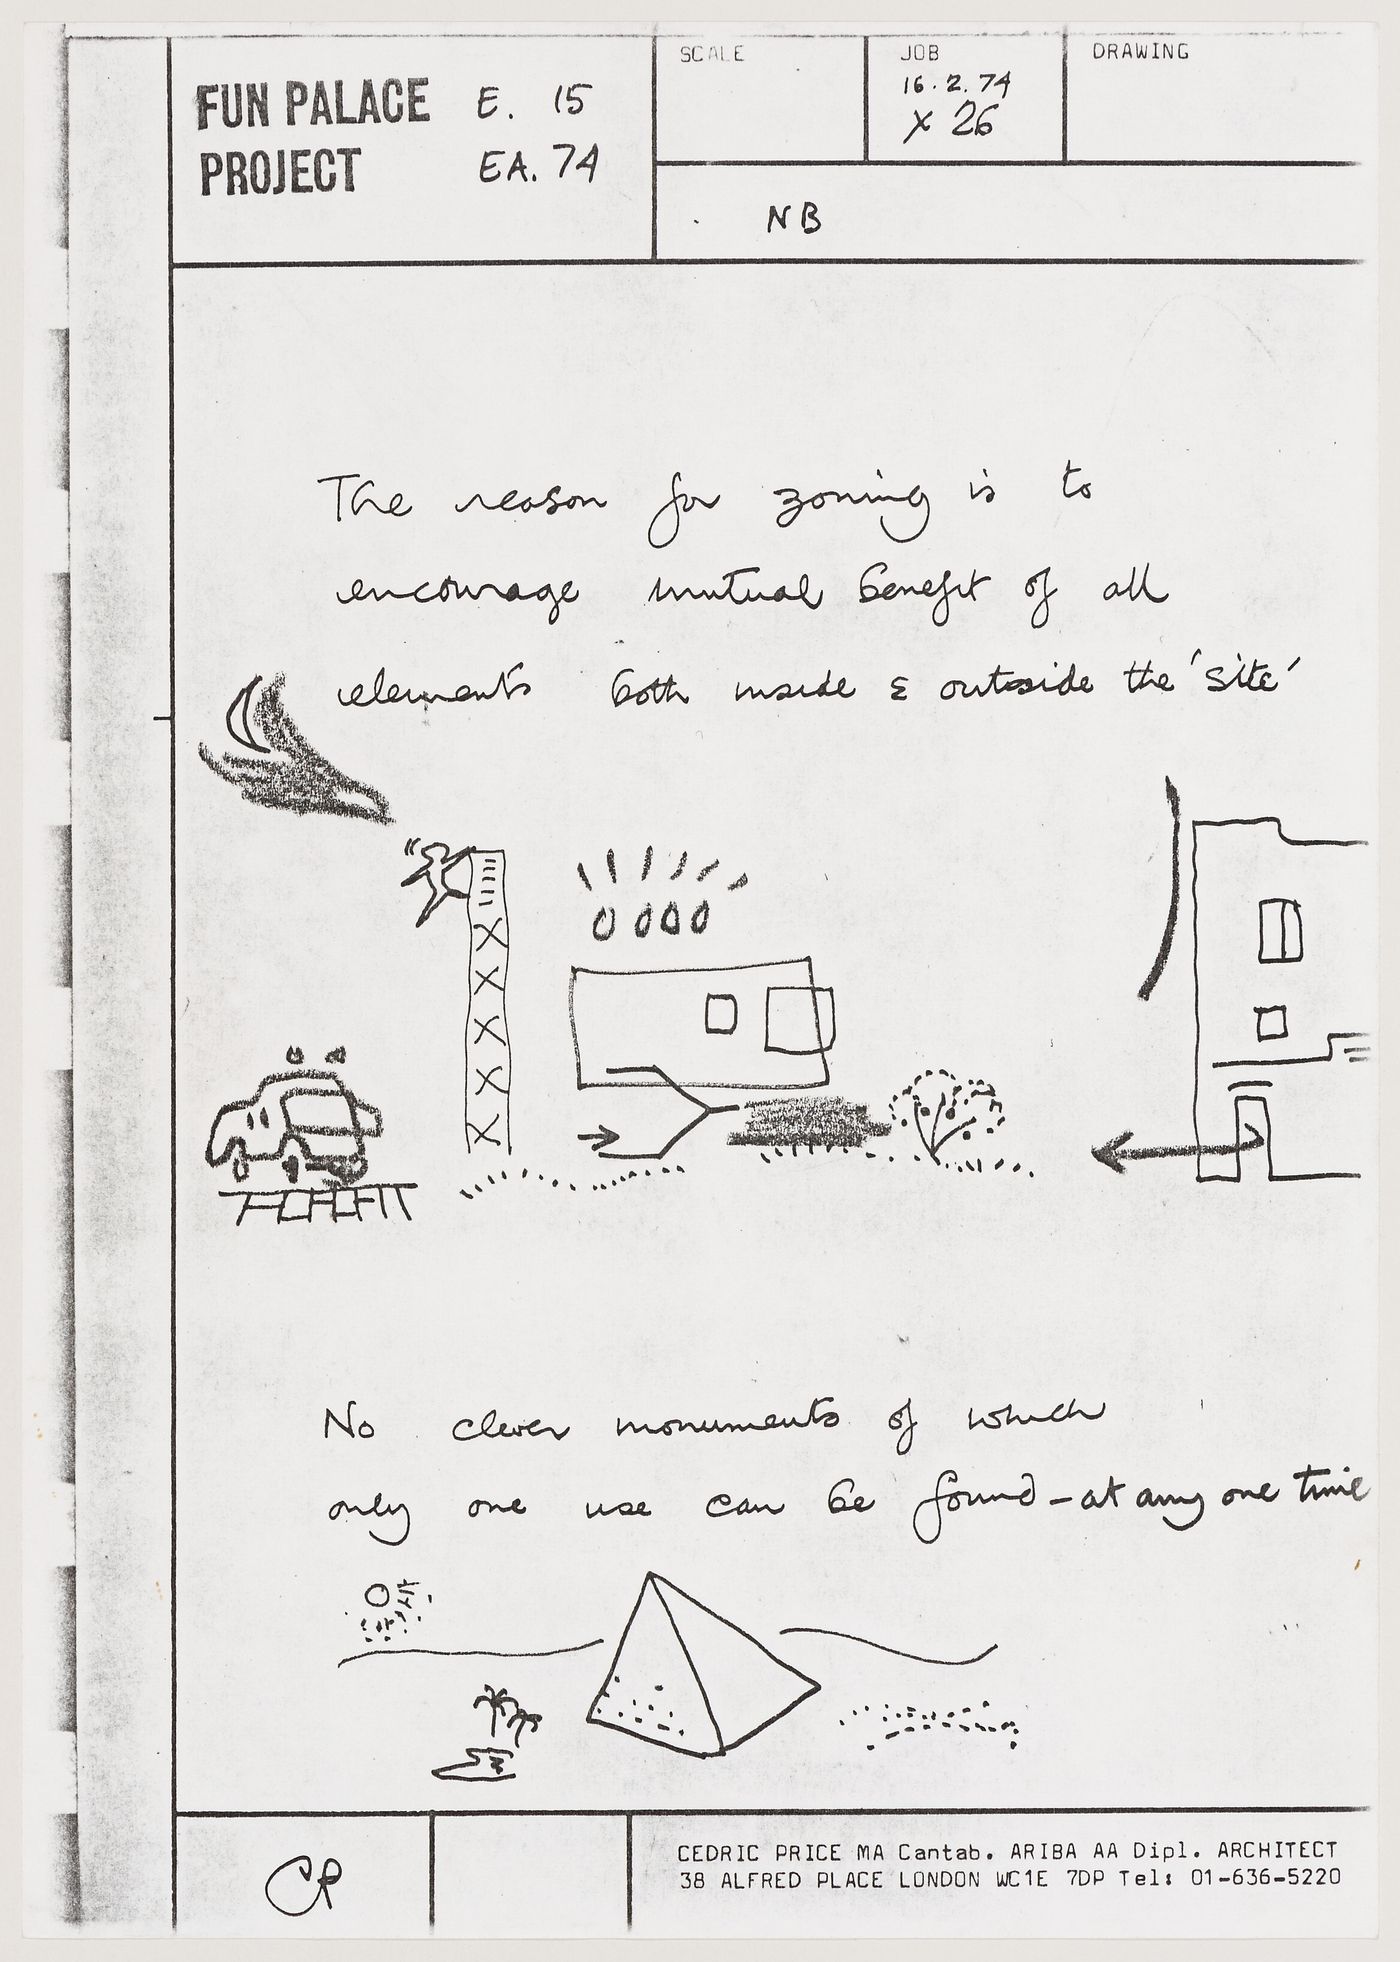 FUN PALACE E. 15
PROJECT EA. 74
SCALE
JOB
16.2.74
X 26
DRAWING
NB
The reason for zoning is to
encourage mutual benefit of all
elements both inside & outside the 'site'
No clever monuments of which
only one use can be found – at any one time
CP
CEDRIC PRICE MA Cantab. ARIBA AA Dipl. ARCHITECT
38 ALFRED PLACE LONDON WC1E 7DP Tel: 01-636-5220